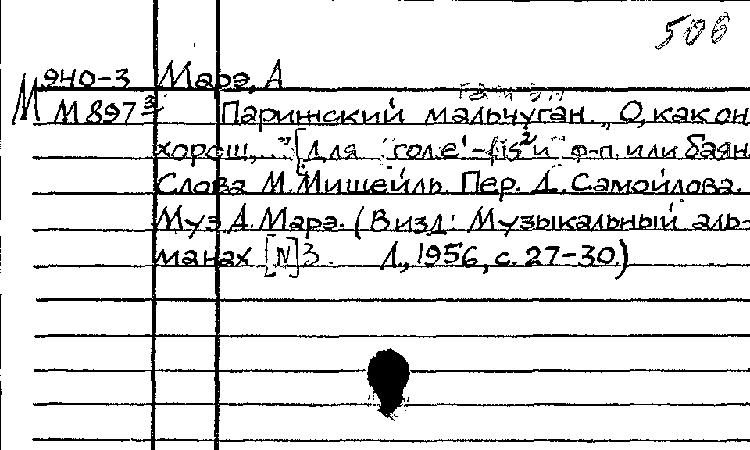 506
М 940-3 Марэ, А
М 897³ Парижский мальчуган. „О, как он
хорош,..." [Для голе'-fis² и ф-п. или баян
Слова М. Мишейль Пер. Д. Самойлова.
Муз А. Марэ. (В изд: Музыкальный аль-
манах [N] 3. Л., 1956, с. 27-30.)